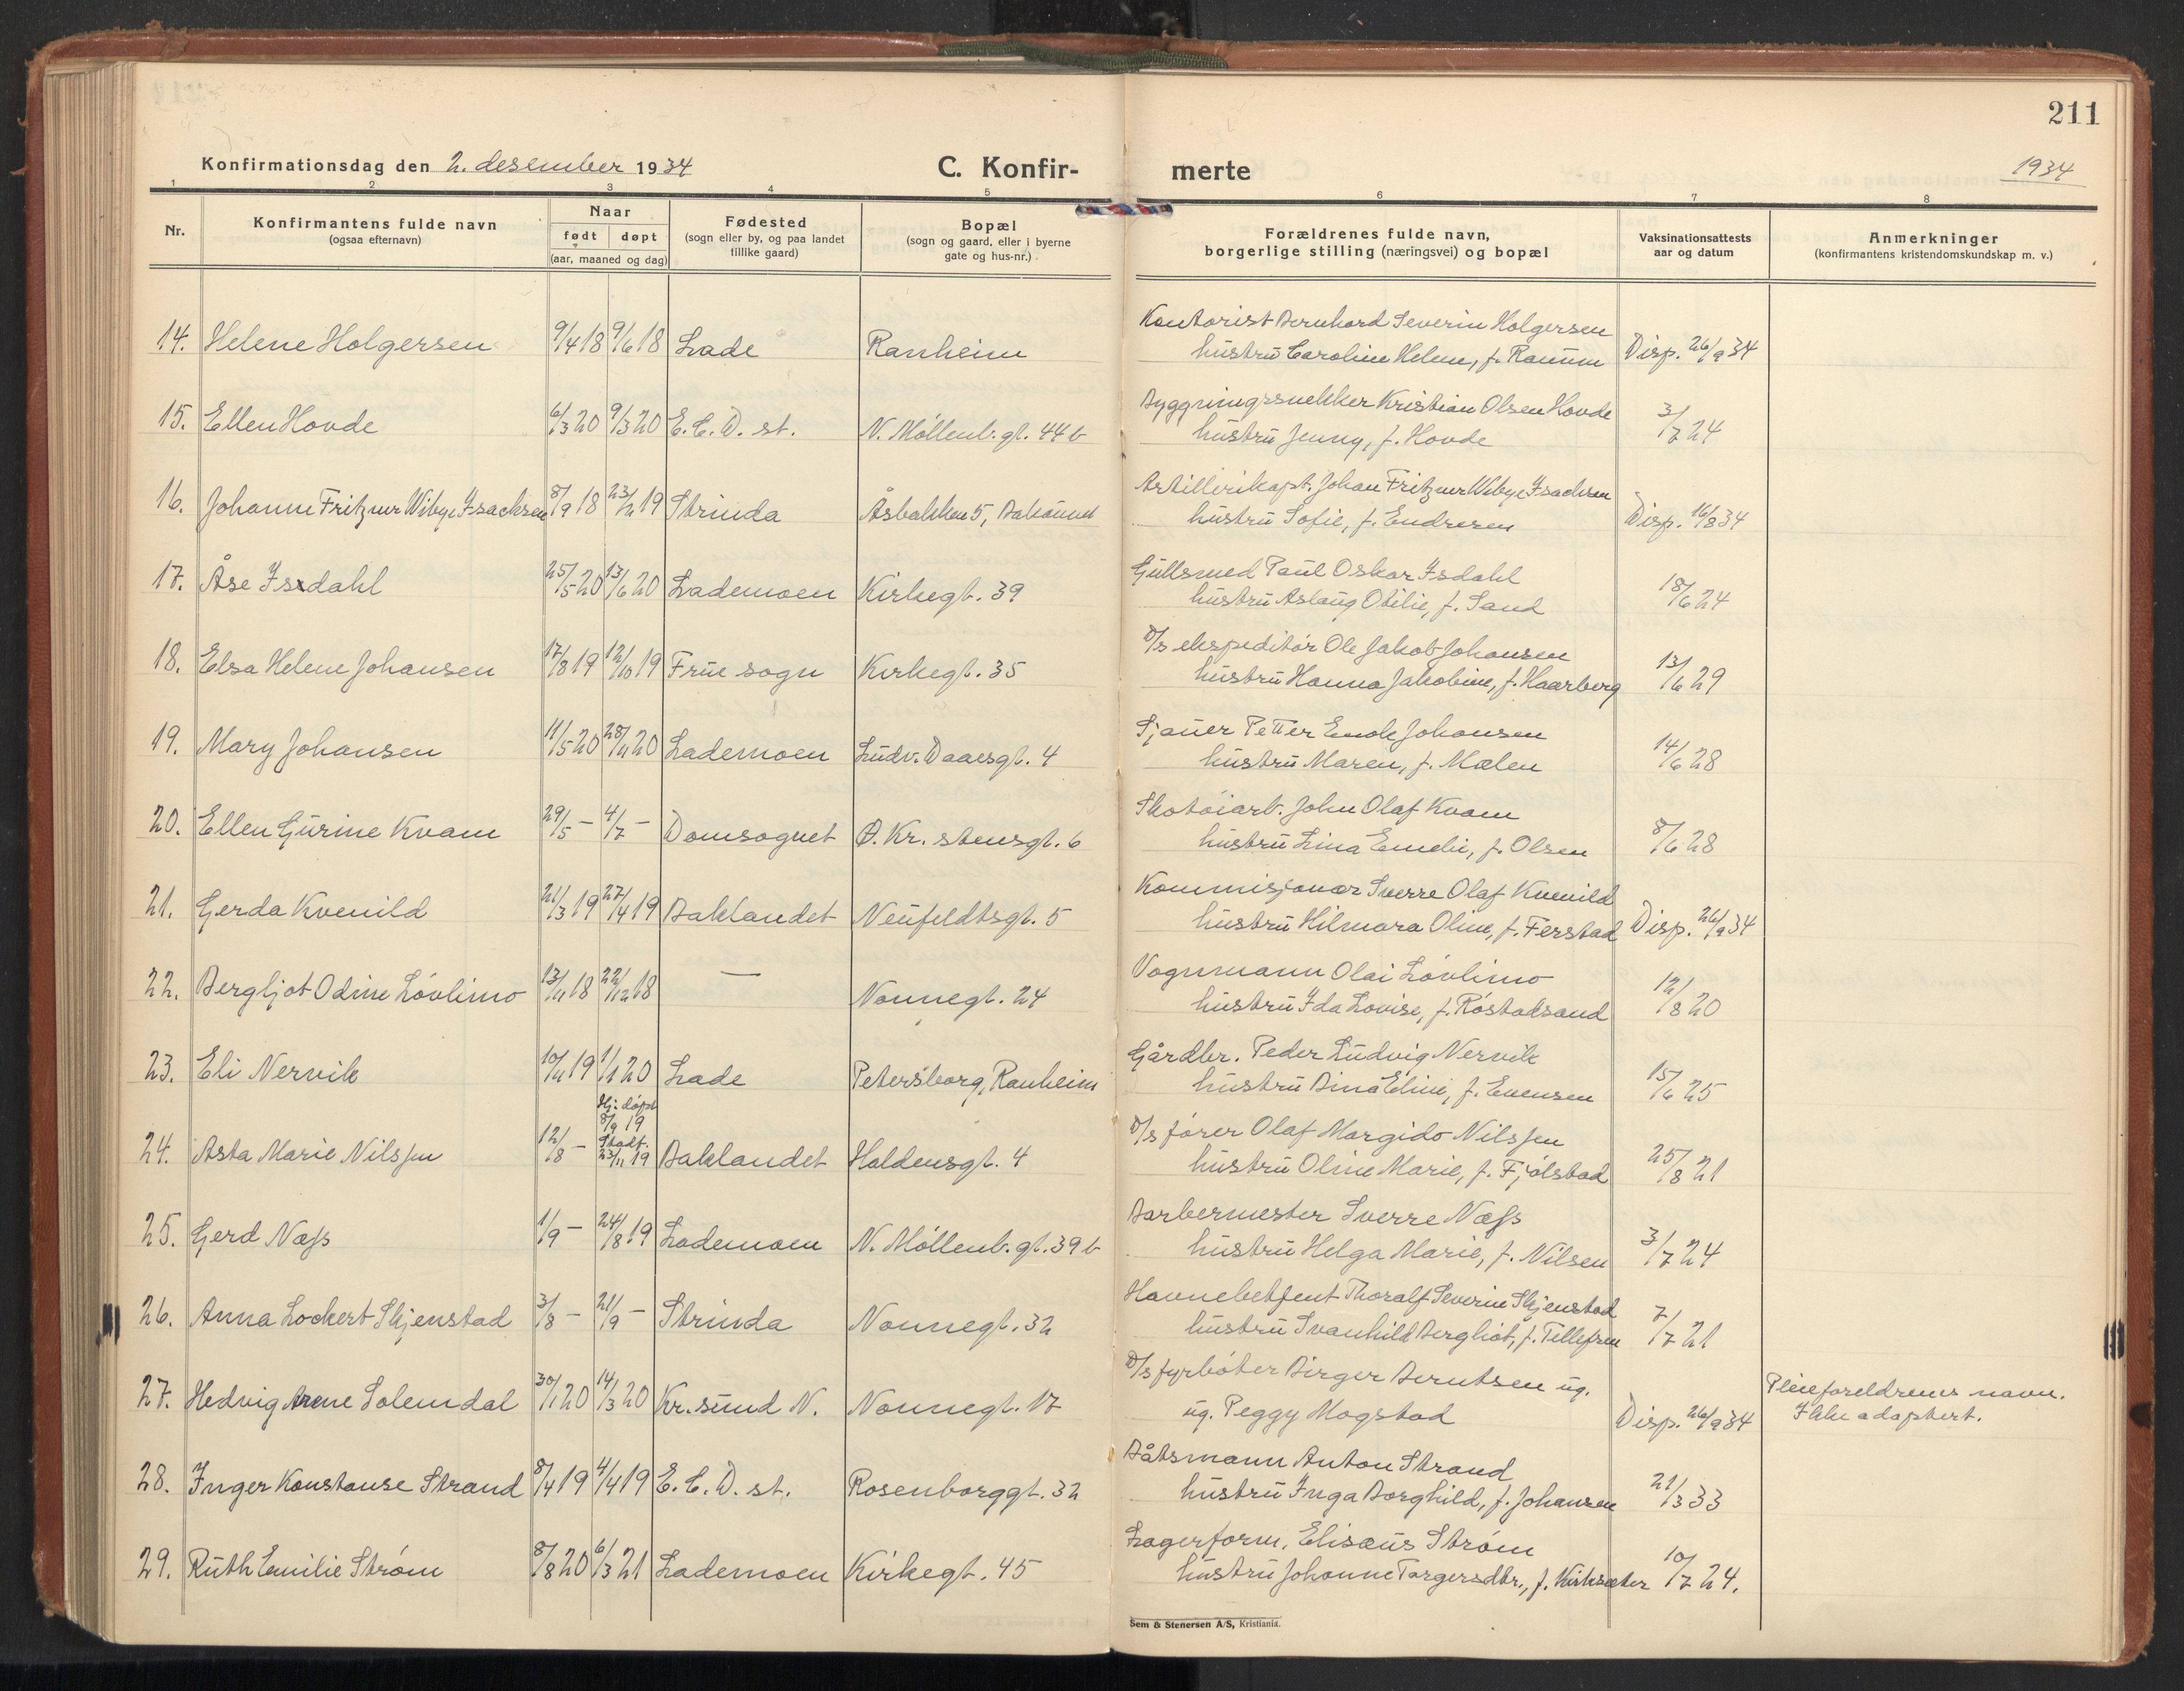 211
Konfirmationsdag den 2. desember 1934
C. Konfir-
merte
1934
1 2 3 4 5 6 7 8
Nr.
Konfirmantens fulde navn
(ogsaa efternavn)
Naar
født døpt
(aar, maaned og dag)
Fødested
(sogn eller by, og paa landet
tillike gaard)
Bopæl
(sogn og gaard, eller i byerne
gate og hus-nr.)
Forældrenes fulde navn,
borgerlige stilling (næringsvei) og bopæl
Vaksinationsattests
aar og datum
Anmerkninger
(konfirmantens kristendomskundskap m. v.)
Kontorist Bernhard Severin Holgersen
14. Helene Holgersen 9/4 18 9/6 18 Lade Ranheim hustru Caroline Helene, f. Ranum Disp. 26/9 34
Byggningssnekker Kristian Olsen Hovde
15. Ellen Hovde 6/3 20 9/3 20 E. C. D. st. N. Möllenb. gt. 44 b hustru Jenny, f. Hovde 3/7 24
Artillerikapt. Johan Fritzner Wibye Isachsen
16. Johanne Fritzner Wibye Isachsen 8/9 18 23/2 19 Strinda Åsbakken 5, Bakaunet hustru Sofie, f. Endresen Disp. 16/8 34
Gullsmed Paul Oskar Isdahl
17. Åse Isdahl 25/5 20 13/6 20 Lademoen Kirkegt. 39 hustru Aslaug Otilie, f. Sand 18/6 24
D/s ekspeditör Ole Jakob Johansen
18. Elsa Helene Johansen 17/8 19 12/10 19 Frue sogn Kirkegt. 35 hustru Hanna Jakobine, f. Haarberg 13/6 29
Sjauer Petter Enok Johansen
19. Mary Johansen 11/5 20 28/11 20 Lademoen Ludv. Daaesgt. 4 hustru Maren, f. Mælen 14/6 28
Skotöiarb. John Olaf Kvam
20. Ellen Gurine Kvam 29/5 - 4/7 - Domsognet Ø. Kr. stensgt. 6 hustru Lina Emelie, f. Olsen 8/6 28
Kommisjonær Sverre Olaf Kvenild
21. Gerda Kvenild 21/3 19 27/4 19 Baklandet Neufeldtsgt. 5 hustru Hilmara Oline, f. Ferstad Disp. 26/9 34
Vognmann Olai Lövlimo
22. Bergljot Odine Lövlimo 13/11 18 22/12 18 — Nonnegt. 24 hustru Ida Lovise, f. Röstadsand 12/8 20
Gårdbr. Peder Ludvig Nervik
23. Eli Nervik 10/11 19 1/1 20 Lade Petersborg, Ranheim hustru Dina Eline, f. Evensen 15/6 25
Hj. döpt
8/9 19
D/s förer Olaf Margido Nilssen
24. Asta Marie Nilssen 12/8 - Stadf. 23/11 19 Baklandet Haldensgt. 4 hustru Oline Marie, f. Fjölstad 25/8 21
Barbermester Sverre Næss
25. Gerd Næss 1/9 - 24/8 19 Lademoen N. Möllenb. gt. 39 b hustru Helga Marie, f. Nilsen 3/7 24
Havnebetjent Thoralf Severin Skjenstad
26. Anna Lockert Skjenstad 3/8 - 21/9 - Strinda Nonnegt. 32 hustru Svanhild Bergliot, f. Tellefsen 7/7 21
D/s fyrböter Birger Berntsen ug.
27. Hedvig Arene Solemdal 30/1 20 14/3 20 Kr.sund N. Nonnegt. 17 ug. Peggy Mogstad Disp. 26/9 34
Pleieforeldrenes navn.
Ikke adoptert.
Båtsmann Anton Strand
28. Inger Konstanse Strand 8/4 19 4/4 19 E. C. D. st. Rosenborggt. 32 hustru Inga Borghild, f. Johansen 21/3 33
Lagerform. Elisæus Ström
29. Ruth Emilie Ström 8/8 20 6/3 21 Lademoen Kirkegt. 45 hustru Johanne Torgersdtr., f. Kirksæter 10/7 24.
Sem & Stenersen A/S, Kristiania.